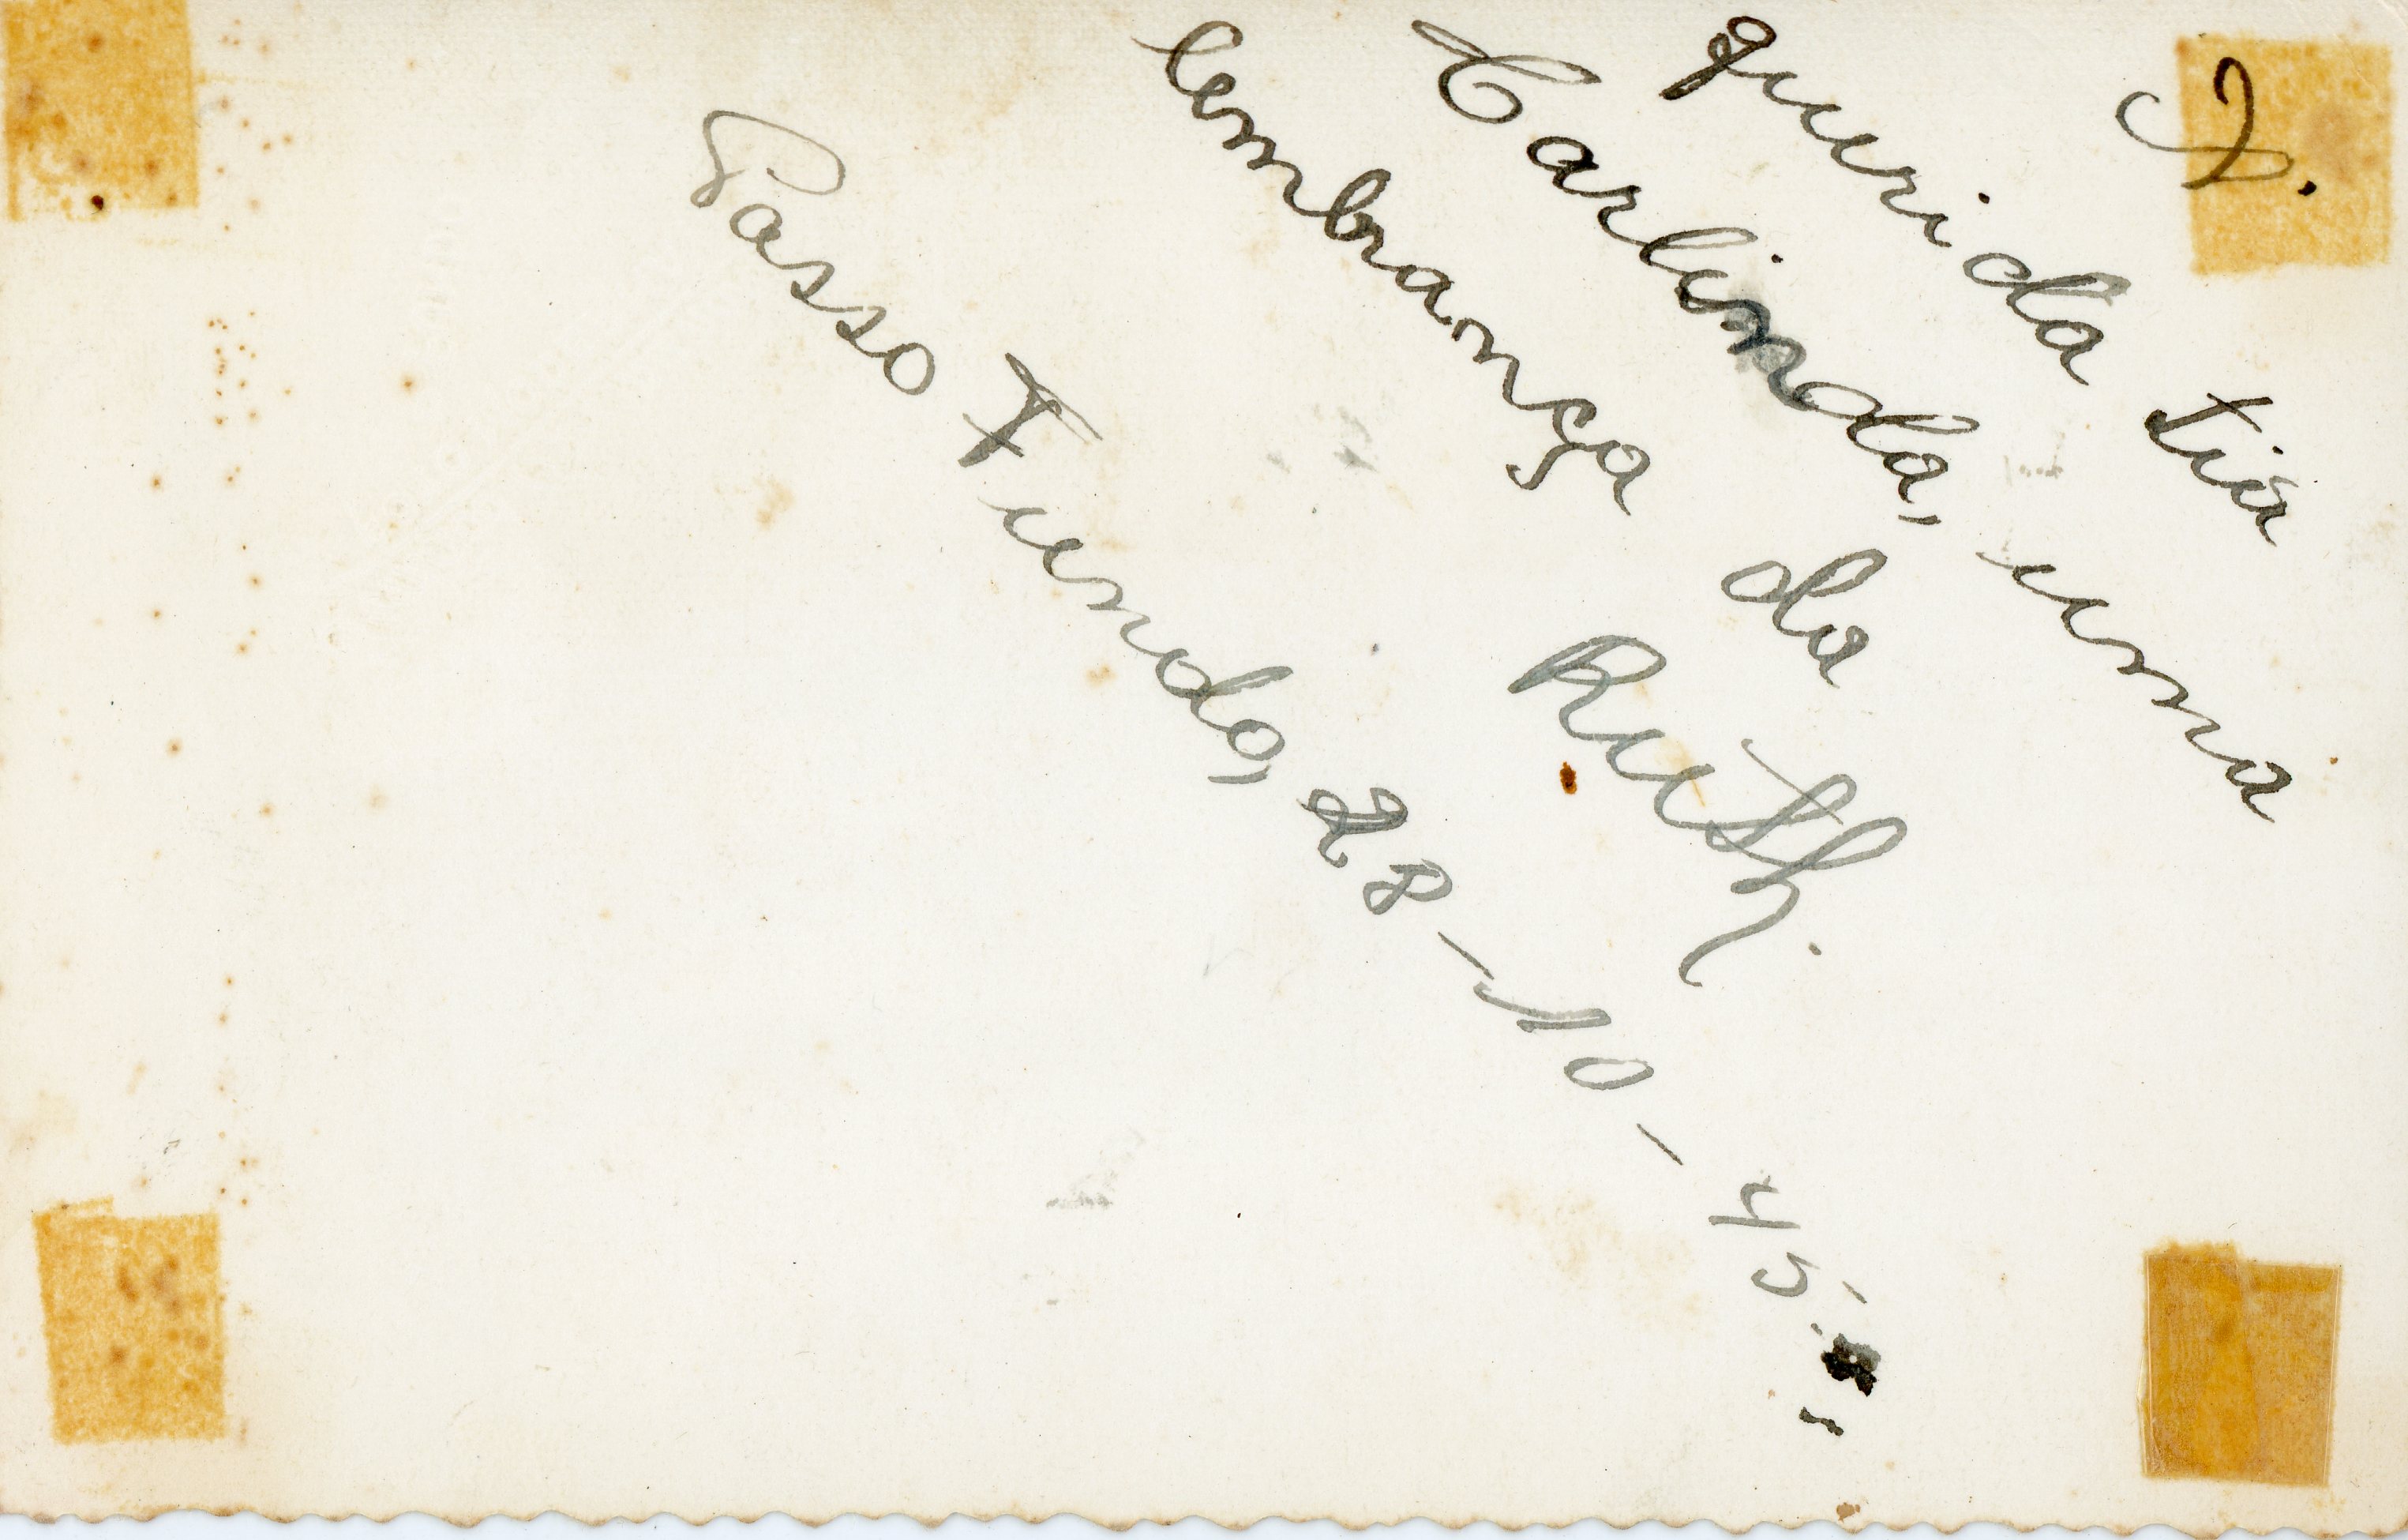 A.
querida tia
Carlinda, uma
lembrança da
Ruth.
Passo Fundo, 28-10-45.